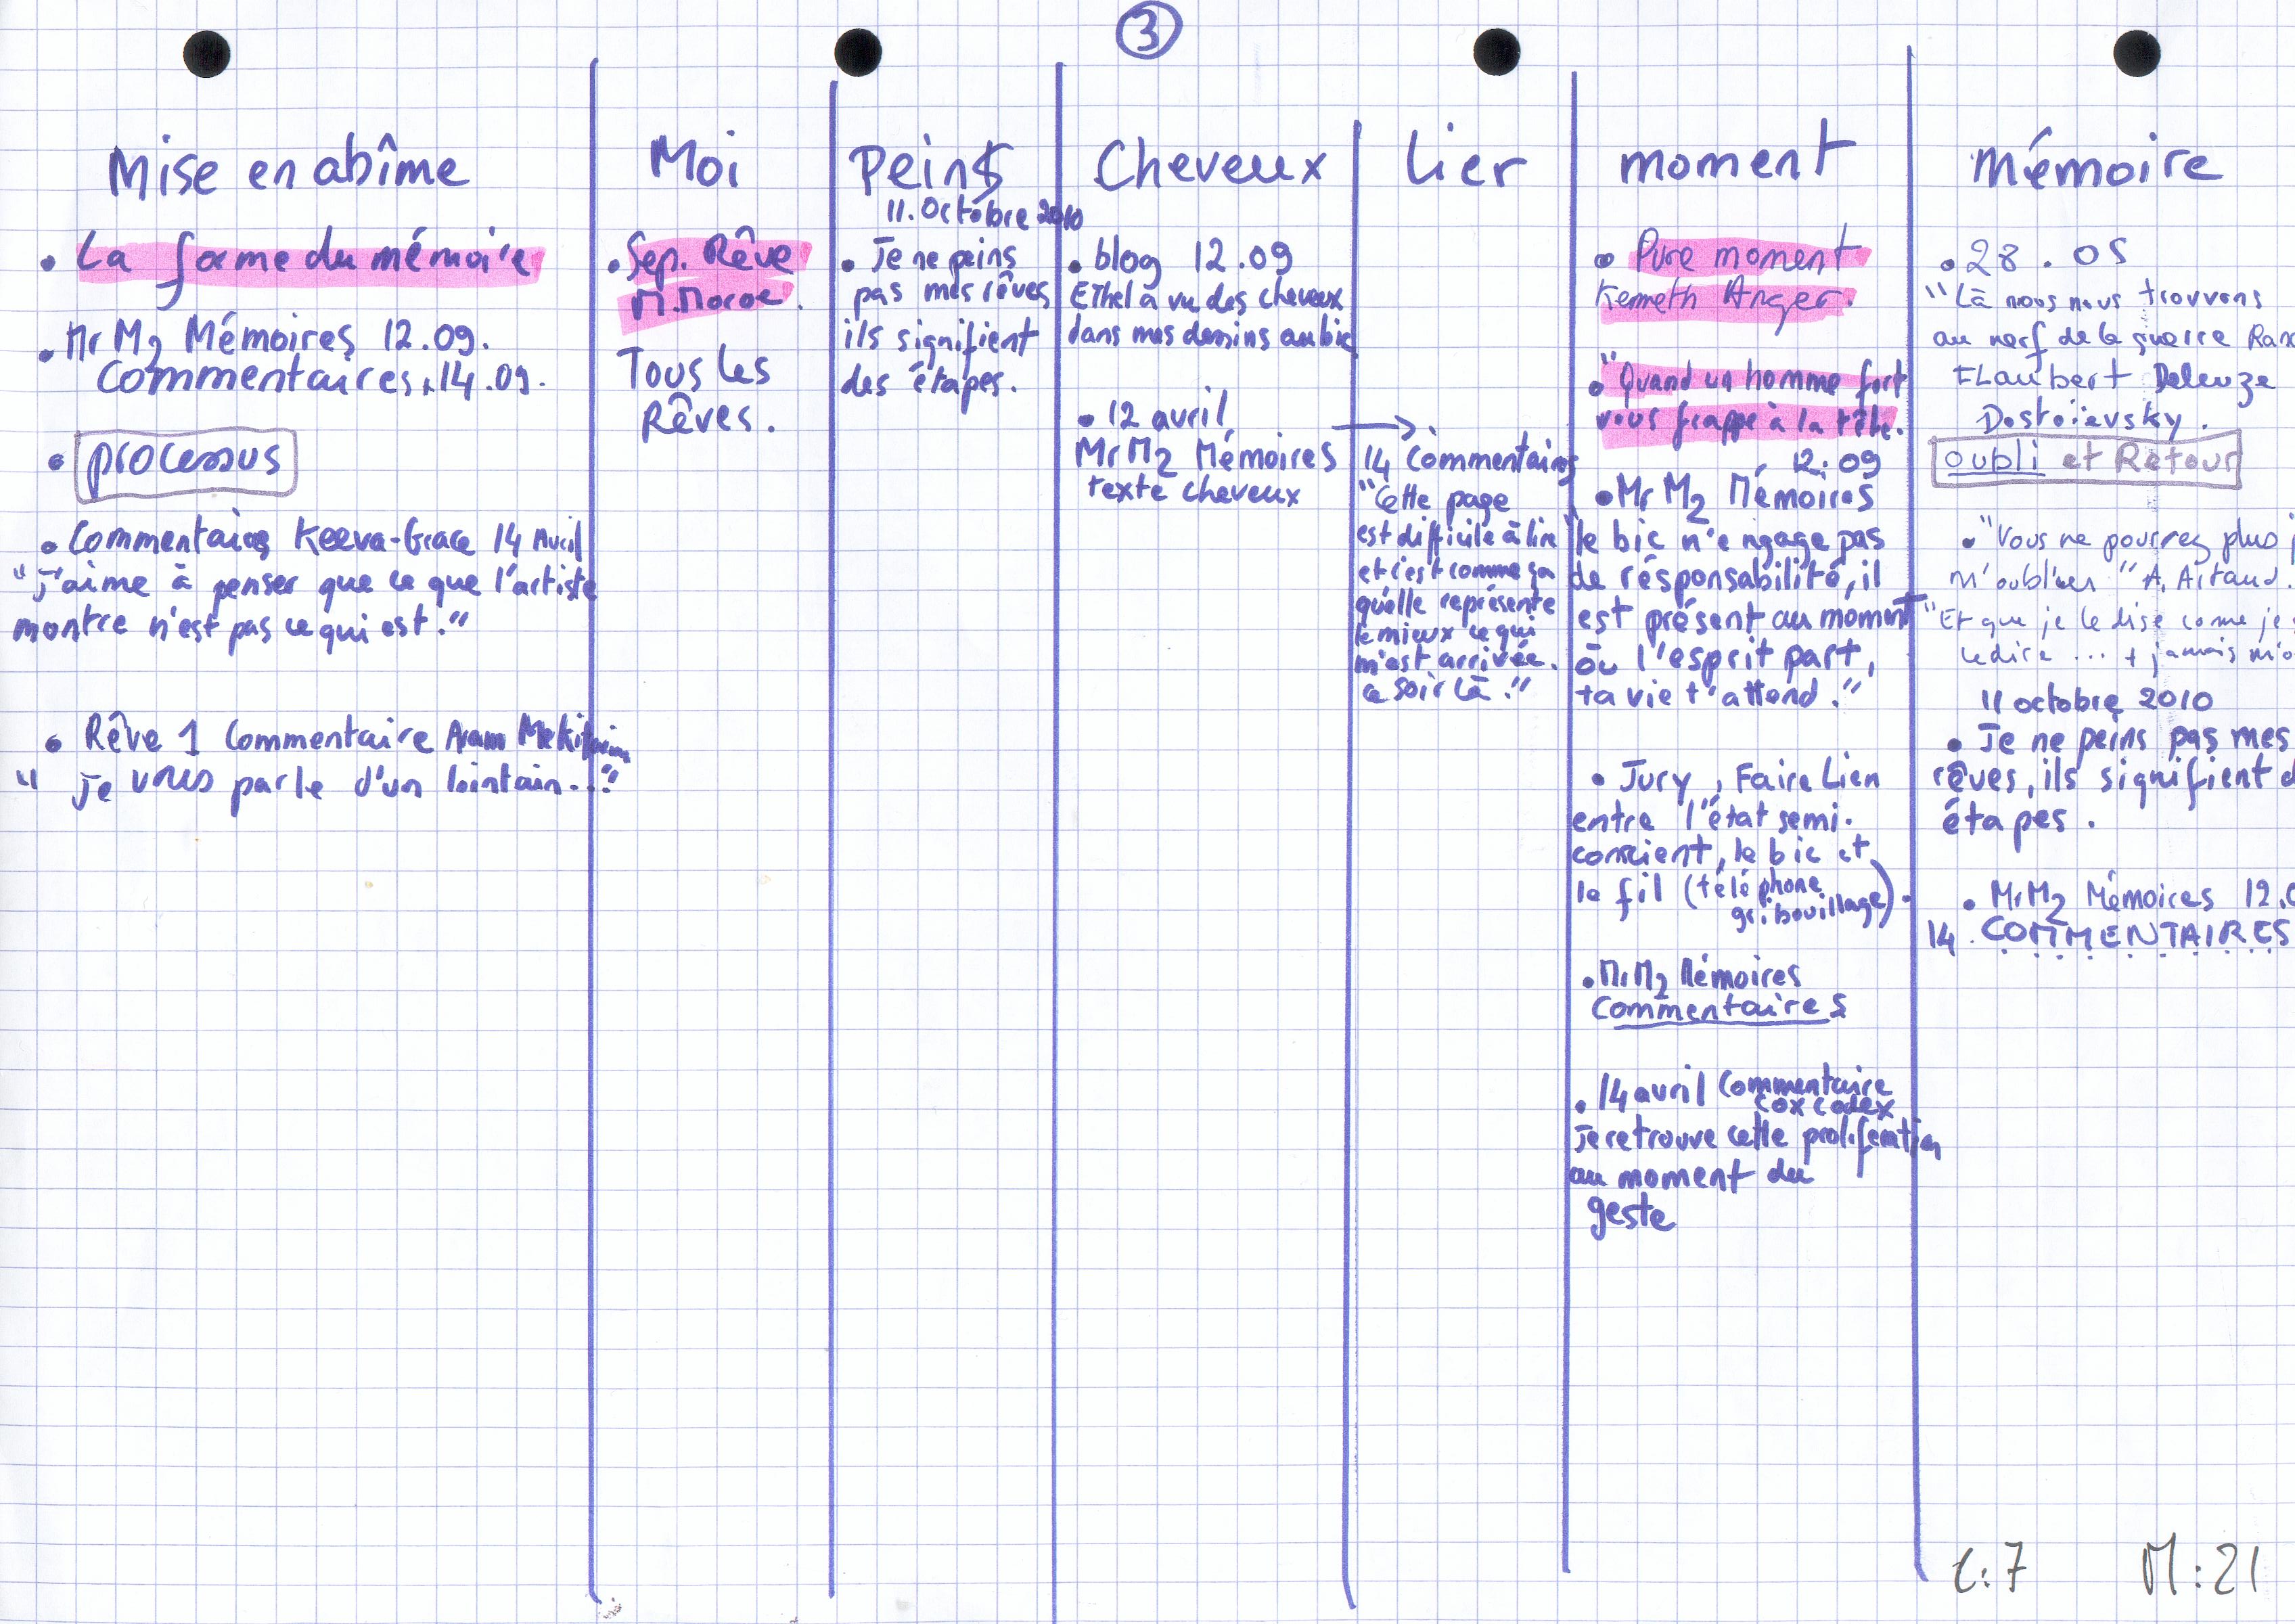 3
Mise en abîme
• La forme du mémoire
• Mr M2 Mémoires 12.09.
Commentaires 14.09.
• processus
• Commentaires Keeva-Grace 14 Avril
"J'aime à penser que ce que l'artiste
montre n'est pas ce qui est."
• Rêve 1 Commentaire Aram
" Je vous parle d'un lointain..."
Moi
• Sep. Rêve
M.
Tous les
Rêves.
Peins
11. Octobre 2010
• Je ne peins
pas mes rêves
ils signifient
des étapes.
Cheveux
• blog 12.09
Ethel a vu des cheveux
dans mes dessins au bic
• 12 avril
Mr M2 Mémoires
texte cheveux
Lier
14 Commentaires
"Cette page
est difficile à lire
et c'est comme ça
qu'elle représente
le mieux ce qui
m'est arrivée.
ce soir là."
moment
• Pure moment
Kenneth Anger.
• "Quand un homme fort
vous frappe à la tête.
12.09
• Mr M2 Mémoires
"le bic n'engage pas
de résponsabilité, il
est présent au moment
où l'esprit part,
ta vie t'attend."
• Jury, Faire Lien
entre l'état semi-
conscient, le bic et
le fil (téléphone
gribouillage).
• Mr M2 Mémoires
Commentaires
• 14 avril Commentaire
cox codex
Je retrouve cette proliferation
au moment du
geste
Mémoire
• 28.05
"Là nous nous trouvons
au nerf de la guerre
Flaubert Deleuze
Dostoïevsky.
oubli et Retour
• "Vous ne pourrez plus
m'oublier" A. Artaud.
"Et que je le dise come je
le dire ... + jamais
11 octobre 2010
• Je ne peins pas mes
rêves, ils signifient
étapes.
• Mr M2 Mémoires 12.
14. COMMENTAIRES
C:7 M:21